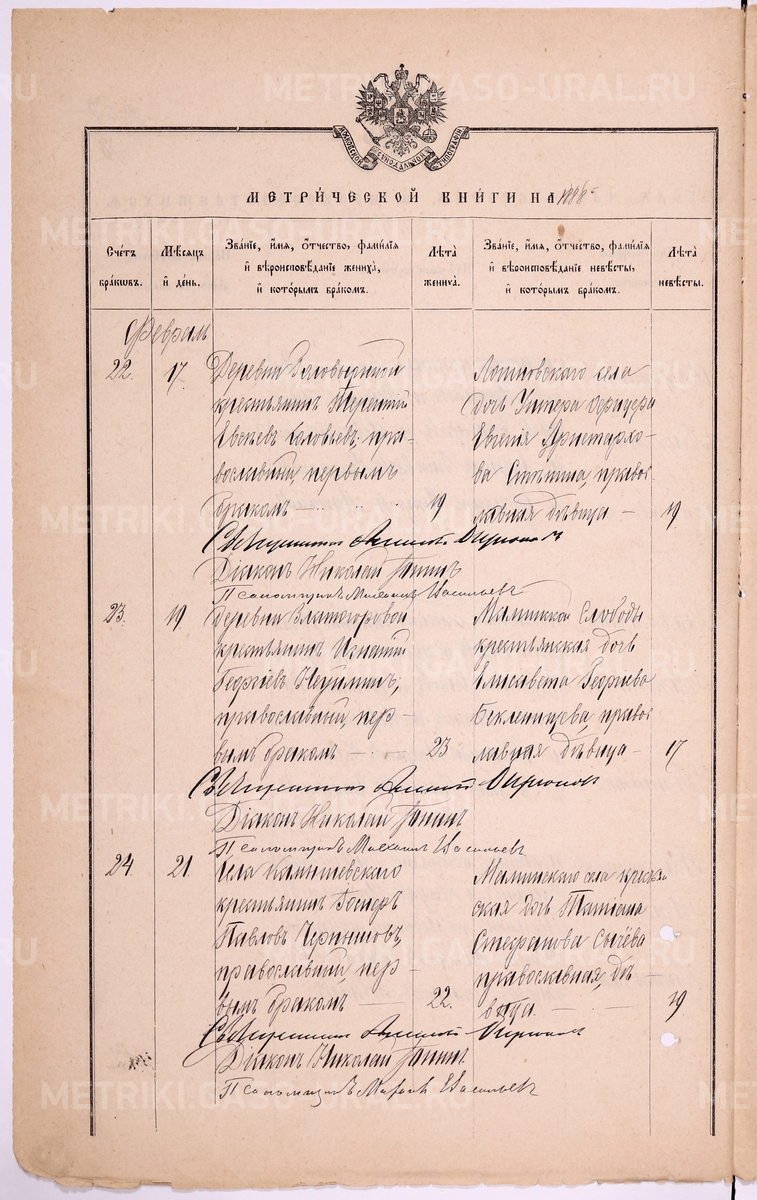 METRIKI.GASO-URAL.RU
МОСКОВСКОЙ СѴНОДАЛЬНОЙ ТИПОГРАФІИ
МЕТРИЧЕСКОЙ КНИГИ НА 1888
Счетъ браковъ.
Мѣсяцъ и день.
Званіе, имя, отчество, фамилія и вѣроисповѣданіе жениха, и которымъ бракомъ.
Лѣта жениха.
Званіе, имя, отчество, фамилія и вѣроисповѣданіе невѣсты, и которымъ бракомъ.
Лѣта невѣсты.
Февраль
22. 17.
Деревни
крестьянинъ Терентій
Евсѣевъ Соловьевъ, пра-
вославный, первымъ
бракомъ — 19
села
дочь Унтеръ Офицера
Евгенія Аристархо-
ва православ
лавная дѣвица — 19
Священникъ
Діаконъ Николай Топинъ
Псаломщикъ Михаилъ Васильевъ
23. 19.
Деревни Златогоровой
крестьянинъ Игнатій
Георгіевъ Неуйминъ,
православный, пер-
вымъ бракомъ — 23
Маминской Слободы
крестьянская дочь
Елисавета Георгіева
Бекленищева, правос
лавная дѣвица — 17
Священникъ
Діаконъ Николай Топинъ
Псаломщикъ Михаилъ Васильевъ
24. 21.
Села Камышевскаго
крестьянинъ
Павловъ Чернышовъ,
православный, пер-
вымъ бракомъ — 22.
Маминскаго села крестья
ская дочь Татіана
Стефанова Сычёва
православная, дѣ-
вица. — 19
Священникъ
Діаконъ Николай Топинъ
Псаломщикъ Михаилъ Васильевъ